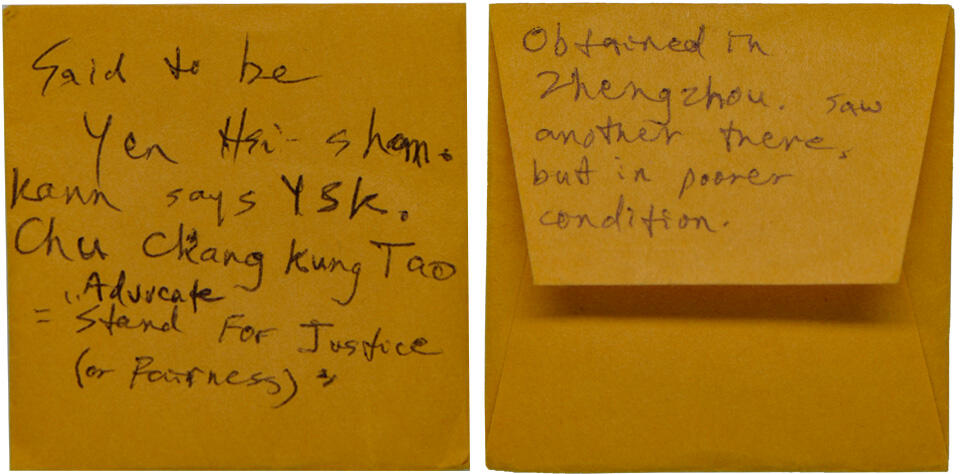 Said to be
Yen Hsi-shan.
Kann says YSK.
Chu Chang Kung Tao
"Advocate
= Stand For Justice
(or Fairness)"
Obtained in
Zhengzhou. Saw
another there,
but in poorer
condition.